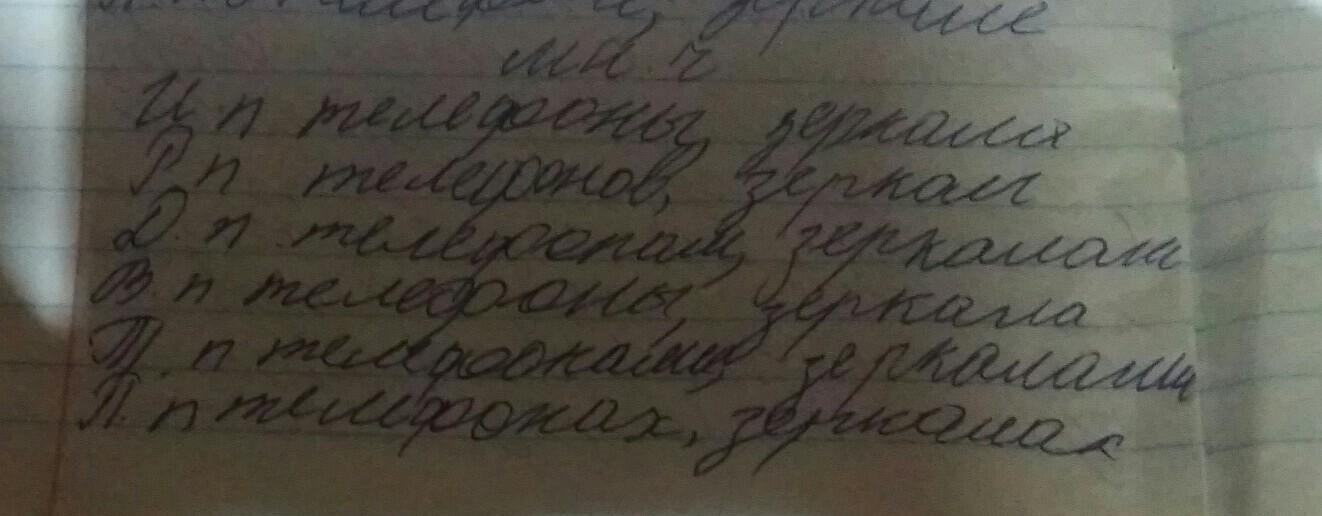 телефоне, зеркале
мн. ч
И п телефоны, зеркала
Р п телефонов, зеркал
Д. п. телефонам, зеркалам
В. п телефоны, зеркала
Т. п телефонами, зеркалами
П. п телефонах, зеркалах